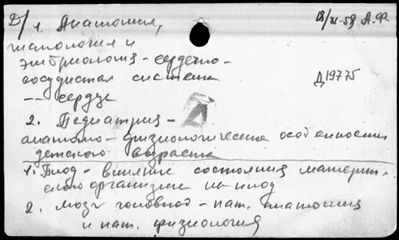 Д/ 1. Анатомия, 13/XI-59 А.Ф
гистология и
эмбриология - сердечно-
сосудистая система Д19775
-- сердце
2. Педиатрия -
анатомо-физиологические особенности
детского возраста
1. Плод - влияние состояния материн-
ского организма на плод
2. Мозг головной - пат. анатомия
и пат. физиология